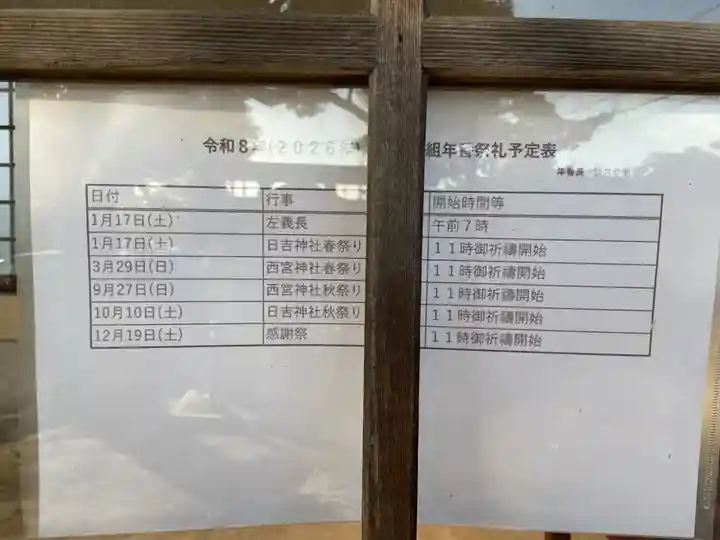 令和8年(2026年) 組年番祭礼予定表
年番長
日付 行事 開始時間等
1月17日(土) 左義長 午前7時
1月17日(土) 日吉神社春祭り 11時御祈禱開始
3月29日(日) 西宮神社春祭り 11時御祈禱開始
9月27日(日) 西宮神社秋祭り 11時御祈禱開始
10月10日(土) 日吉神社秋祭り 11時御祈禱開始
12月19日(土) 感謝祭 11時御祈禱開始